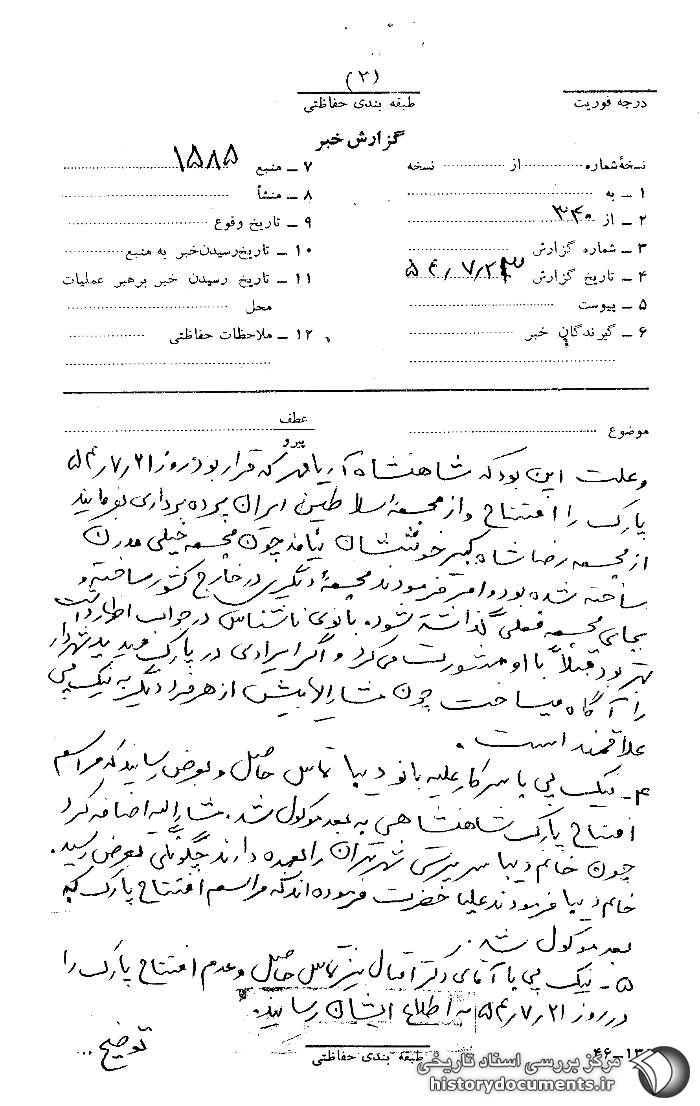 (۲)
درجه فوریت
طبقه بندی حفاظتی
گزارش خبر
نسخهٔ شماره ............ از ............ نسخه
۱ ــ به
۲ ــ از ۳۴۰
۳ ــ شماره گزارش
۴ ــ تاریخ گزارش ۵۴٫۷٫۲۳
۵ ــ پیوست
۶ ــ گیرندگان خبر
۷ ــ منبع ۱۵۸۵
۸ ــ منشأ
۹ ــ تاریخ وقوع
۱۰ ــ تاریخ رسیدن خبر به منبع
۱۱ ــ تاریخ رسیدن خبر برهبر عملیات
محل
۱۲ ــ ملاحظات حفاظتی
موضوع
عطف
پیرو
و علت این بود که شاهنشاه آریامهر که قرار بود روز ۵۴٫۷٫۲۱
پارک را افتتاح و از مجسمه سلاطین ایران پرده برداری بفرمایند
از مجسمه رضا شاه کبیر خوششان نیامد چون مجسمه خیلی مدرن
ساخته شده بود و امر فرمودند مجسمه دیگری در خارج کشور ساخته و
بجای مجسمه فعلی گذاشته شود. بانوی ناشناس در جواب اظهار داشت
بهتر بود قبلاً با او مشورت می کرد و اگر ایرادی در پارک میدید شهردار
را آگاه میساخت چون مشارالیها بیش از هر فرد دیگر به نیک پی
علاقمند است.
۴ـ نیک پی با سرکار علیه بانو دیبا تماس حاصل و بعرض رسانید که مراسم
افتتاح پارک شاهنشاهی به بعد موکول شد. مشارالیه اضافه کرد
چون خانم دیبا سرپرستی شهر تهران را بعهده دارند چگونگی بعرض رسید.
خانم دیبا فرمودند علیا حضرت فرموده اند که مراسم افتتاح پارک به
بعد موکول شد.
۵ ـ نیک پی با آقای دکتر اقبال نیز تماس حاصل و عدم افتتاح پارک را
در روز ۵۴٫۷٫۲۱ به اطلاع ایشان رسانید.
توضیح ...
طبقه بندی حفاظتی
۴۶-۱۳
مرکز بررسی اسناد تاریخی
historydocuments.ir